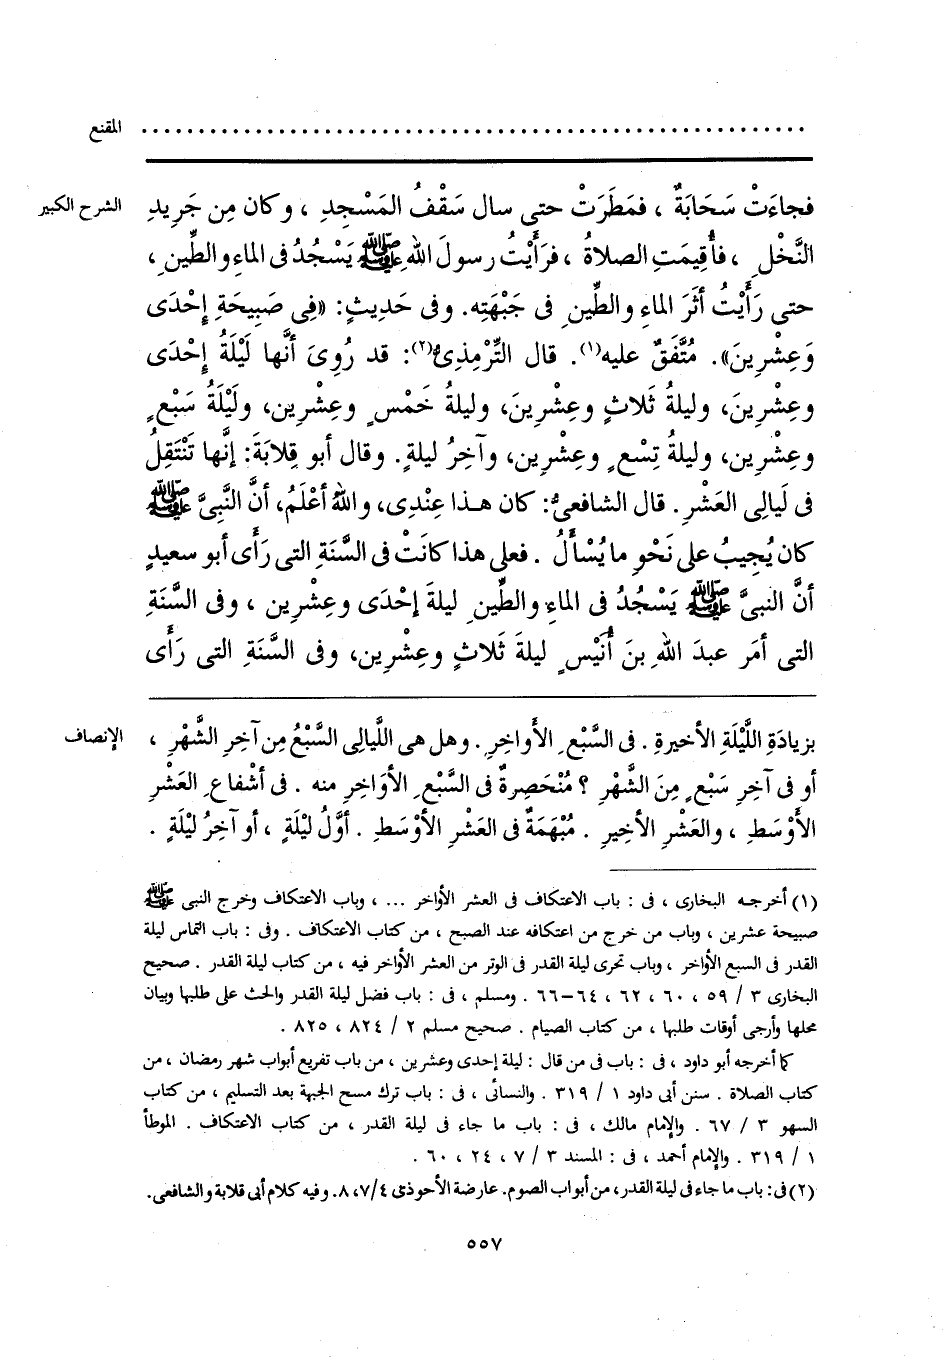 المقنع ............................................................
الشرح الكبير
فجاءَتْ سَحَابَةٌ ، فمَطَرَتْ حتى سال سَقْفُ المَسْجِدِ ، وكان مِن جَرِيدِ
النَّخْلِ ، فأُقِيمَتِ الصلاةُ ، فرَأَيْتُ رسولَ اللهِ ﷺ يَسْجُدُ فى الماءِ والطِّينِ ،
حتى رَأَيْتُ أثَرَ الماءِ والطِّينِ فى جَبْهَتِه. وفى حَدِيثٍ: «فِى صَبِيحَةِ إِحْدَى
وَعِشْرِينَ». مُتَّفَقٌ عليه(١). قال التِّرْمِذِىُّ(٢): قد رُوِىَ أنَّها لَيْلَةُ إِحْدَى
وعِشْرِينَ، وليلةُ ثَلاثٍ وعِشْرِينَ، وليلةُ خَمْسٍ وعِشْرِين، ولَيْلَةُ سَبْعٍ
وعِشْرِين، وليلةُ تِسْعٍ وعِشْرِين، وآخِرُ ليلةٍ. وقال أبو قِلابَةَ: إنَّها تَنْتَقِلُ
فى لَيالِى العَشْرِ. قال الشافعىُّ: كان هذا عِنْدِى، واللهُ أعْلَمُ، أنَّ النَّبِىَّ ﷺ
كان يُجِيبُ على نَحْوِ ما يُسْأَلُ . فعلى هذا كانَتْ فى السَّنَةِ التى رَأَى أبو سعيدٍ
أنَّ النبىَّ ﷺ يَسْجُدُ فى الماءِ والطِّينِ ليلةَ إحْدَى وعِشْرِين ، وفى السَّنَةِ
التى أمَر عبدَ اللهِ بنَ أُنَيْسٍ ليلةَ ثَلاثٍ وعِشْرِين، وفى السَّنَةِ التى رَأَى
الإنصاف
بزيادَةِ اللَّيْلَةِ الأخيرةِ . فى السَّبْعِ الأَواخِرِ . وهل هى اللَّيالِى السَّبْعُ مِن آخِرِ الشَّهْرِ ،
أو فى آخِرِ سَبْعٍ مِنَ الشَّهْرِ ؟ مُنْحَصِرةٌ فى السَّبْعِ الأَوَاخِرِ منه . فى أشْفاعِ العَشْرِ
الأَوْسَطِ ، والعَشْرِ الأخِيرِ . مُبْهَمَةٌ فى العَشْرِ الأوْسَطِ . أوَّلُ ليْلَةٍ ، أو آخِرُ ليْلَةٍ .
(١) أخرجه البخارى ، فى : باب الاعتكاف فى العشر الأواخر ... ، وباب الاعتكاف وخرج النبى ﷺ
صبيحة عشرين ، وباب من خرج من اعتكافه عند الصبح ، من كتاب الاعتكاف . وفى : باب التماس ليلة
القدر فى السبع الأواخر ، وباب تحرى ليلة القدر فى الوتر من العشر الأواخر فيه ، من كتاب ليلة القدر . صحيح
البخارى ٣ / ٥٩ ، ٦٠ ، ٦٢ ، ٦٤-٦٦ . ومسلم ، فى : باب فضل ليلة القدر والحث على طلبها وبيان
محلها وأرجى أوقات طلبها ، من كتاب الصيام . صحيح مسلم ٢ / ٨٢٤ ، ٨٢٥ .
كما أخرجه أبو داود ، فى : باب فى من قال : ليلة إحدى وعشرين ، من باب تفريع أبواب شهر رمضان ، من
كتاب الصلاة . سنن أبى داود ١ / ٣١٩ . والنسائى ، فى : باب ترك مسح الجبهة بعد التسليم ، من كتاب
السهو ٣ / ٦٧ . والإمام مالك ، فى : باب ما جاء فى ليلة القدر ، من كتاب الاعتكاف . الموطأ
١ / ٣١٩ . والإمام أحمد ، فى : المسند ٣ / ٧ ، ٢٤ ، ٦٠ .
(٢) فى: باب ما جاء فى ليلة القدر، من أبواب الصوم. عارضة الأحوذى ٤/ ٧، ٨. وفيه كلام أبى قلابة والشافعى.
٥٥٧